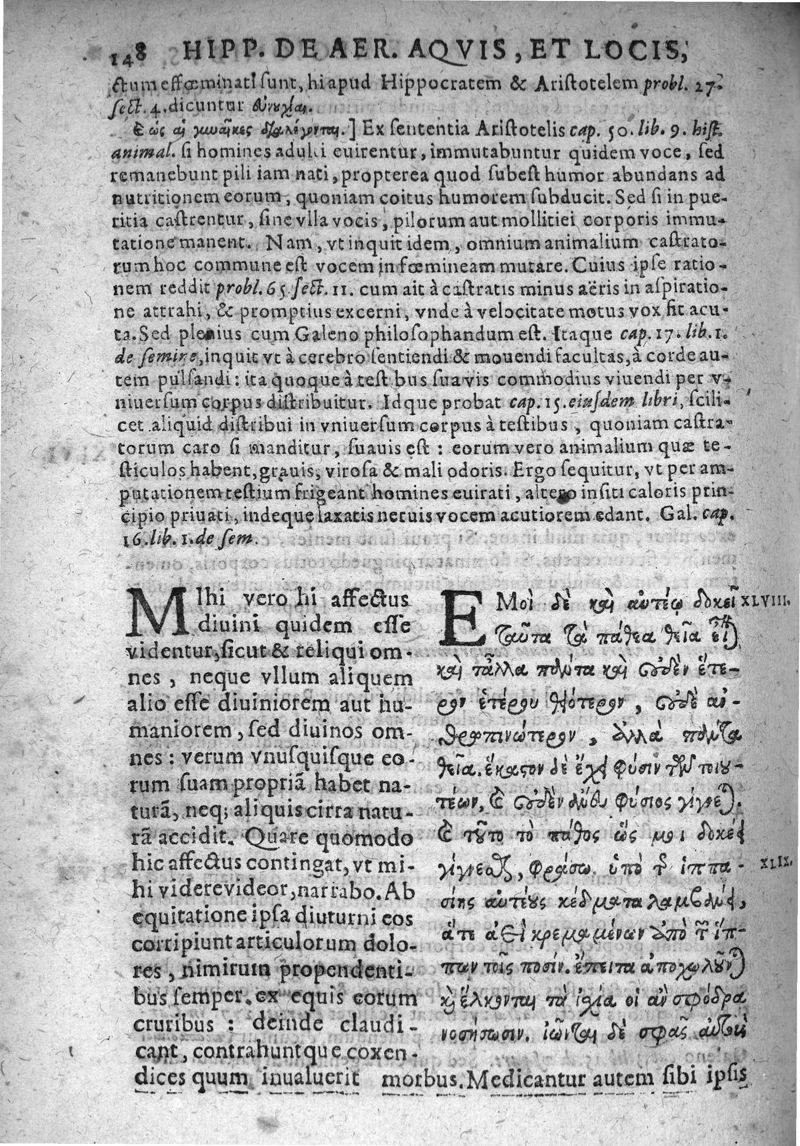 148 HIPP. DE AER. AQVIS, ET LOCIS,
ctum effœminati sunt, hi apud Hippocratem & Aristotelem probl. 27.
sect. 4. dicuntur εὐνουχίαι.
ὡς αἱ γυναῖκες διαλέγονται.] Ex sententia Aristotelis cap. 50. lib. 9. hist.
animal. si homines adulti euirentur, immutabuntur quidem voce, sed
remanebunt pili iam nati, propterea quod subest humor abundans ad
nutritionem eorum, quoniam coitus humorem subducit. Sed si in pue-
ritia castrentur, sine vlla vocis, pilorum aut mollitiei corporis immu-
tatione manent. Nam, vt inquit idem, omnium animalium castrato-
rum hoc commune est vocem in fœmineam mutare. Cuius ipse ratio-
nem reddit probl. 65. sect. 11. cum ait à castratis minus aëris in aspiratio-
ne attrahi, & promptius excerni, vnde à velocitate motus vox fit acu-
ta. Sed plenius cum Galeno philosophandum est. Itaque cap. 17. lib. 1.
de semine, inquit vt à cerebro sentiendi & mouendi facultas, à corde au-
tem pulsandi: ita quoque à testibus suauis commodius viuendi per v-
niuersum corpus distribuitur. Idque probat cap. 15. eiusdem libri, scili-
cet aliquid distribui in vniuersum corpus à testibus, quoniam castra-
torum caro si manditur, suauis est: eorum vero animalium quæ te-
sticulos habent, grauis, virosa & mali odoris. Ergo sequitur, vt per am-
putationem testium frigeant homines euirati, altero insiti caloris prin-
cipio priuati, indeque laxatis neruis vocem acutiorem edant. Gal. cap.
16. lib. 1. de sem.
MIhi vero hi affectus
diuini quidem esse
videntur, sicut & reliqui om-
nes, neque vllum aliquem
alio esse diuiniorem aut hu-
maniorem, sed diuinos om-
nes: verum vnusquisque eo-
rum suam propriã habet na-
turã, neq; aliquis citra natu-
rã accidit. Quare quomodo
hic affectus contingat, vt mi-
hi videre videor, narrabo. Ab
equitatione ipsa diuturni eos
corripiunt articulorum dolo-
res, nimirum propendenti-
bus semper ex equis eorum
cruribus: deinde claudi-
cant, contrahuntque coxen-
dices quum inualuerit morbus. Medicantur autem sibi ipsis
ΕΜοὶ δὲ καὶ αὐτέῳ δοκεῖ XLVIII.
ταῦτα τὰ πάθεα θεῖα εἶναι
καὶ τἄλλα πάντα καὶ οὐδὲν ἕτε-
ρον ἑτέρου θειότερον, οὐδὲ ἀν-
θρωπινώτερον, ἀλλὰ πάντα
θεῖα. ἕκαστον δὲ ἔχει φύσιν τῶν τοιου-
τέων, καὶ οὐδὲν ἄνευ φύσιος γίγνεται.
καὶ τοῦτο τὸ πάθος ὥς μοι δοκεῖ
γίγνεσθαι, φράσω. ὑπὸ τῆς ἱππα- XLIX.
σίης αὐτέους κέδματα λαμβάνει,
ἅτε ἀεὶ κρεμαμένων ἀπὸ τῶν ἵπ-
πων τοῖς ποσίν. ἔπειτα ἀποχωλοῦνται
καὶ ἕλκονται τὰ ἰσχία οἱ ἂν σφόδρα
νοσήσωσιν. ἰῶνται δὲ σφᾶς αὐτοὺς